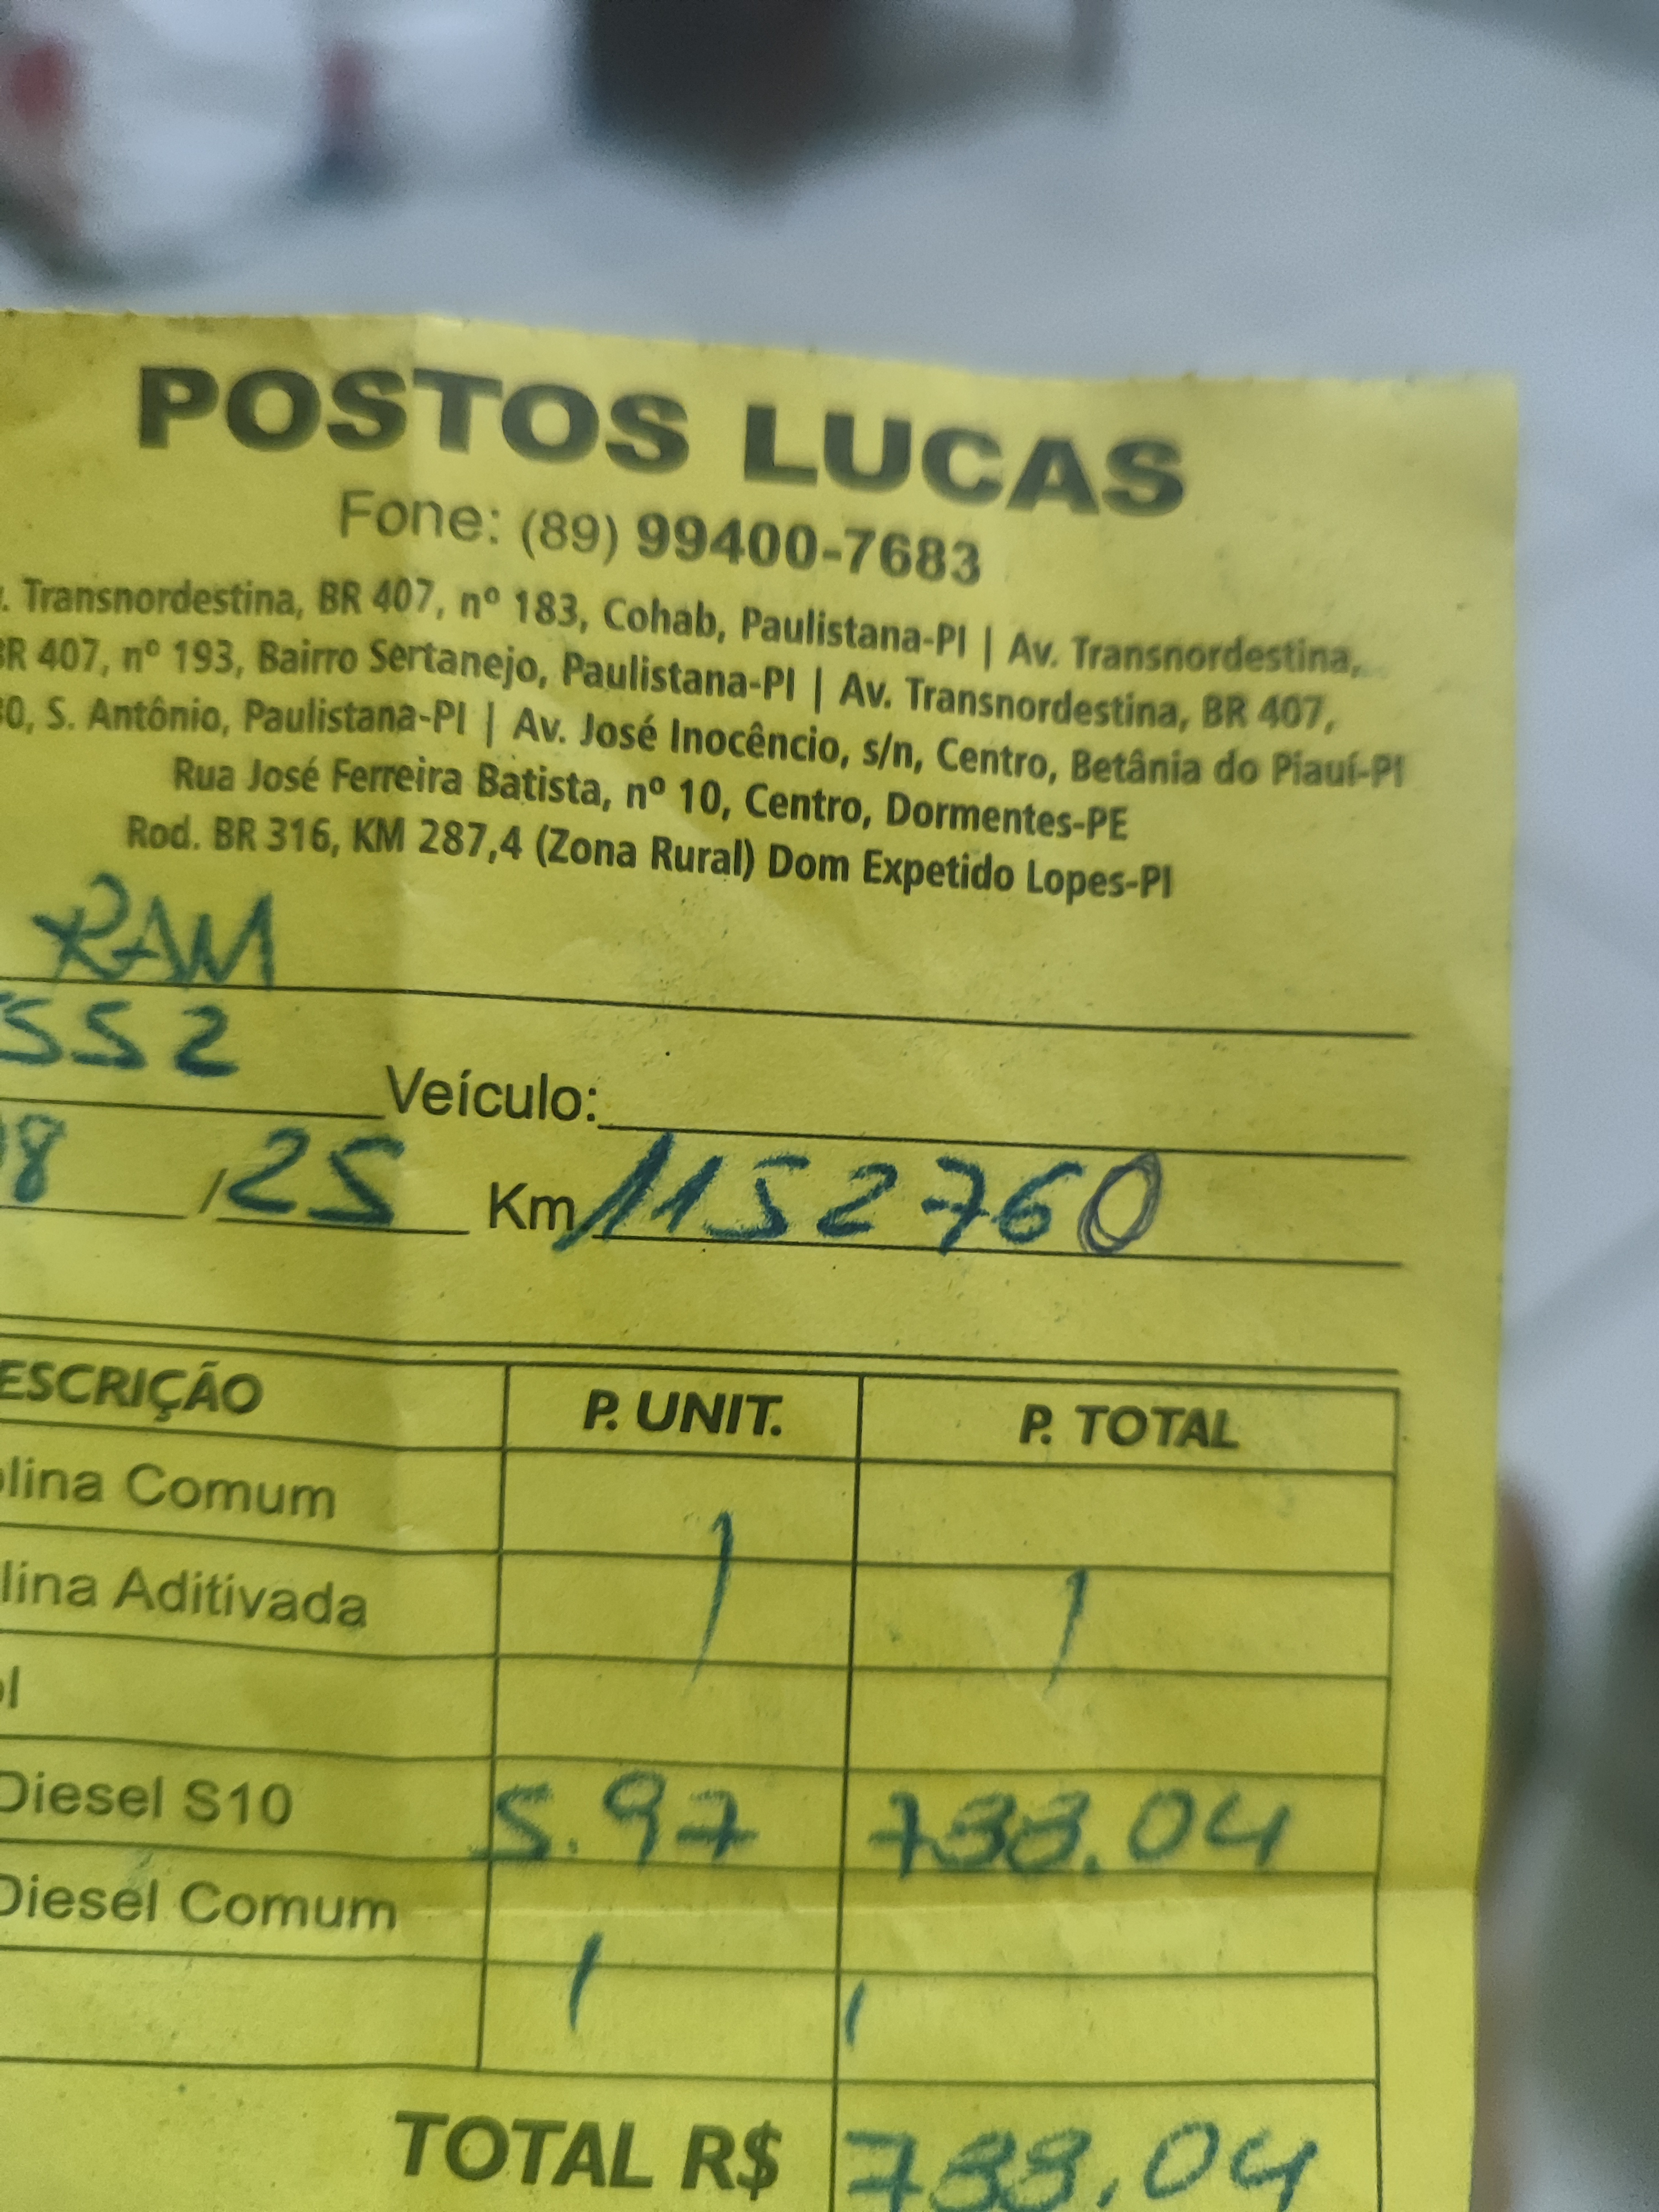 POSTOS LUCAS
Fone: (89) 99400-7683
. Transnordestina, BR 407, nº 183, Cohab, Paulistana-PI | Av. Transnordestina,
BR 407, nº 193, Bairro Sertanejo, Paulistana-PI | Av. Transnordestina, BR 407,
0, S. Antônio, Paulistana-PI | Av. José Inocêncio, s/n, Centro, Betânia do Piauí-PI
Rua José Ferreira Batista, nº 10, Centro, Dormentes-PE
Rod. BR 316, KM 287,4 (Zona Rural) Dom Expetido Lopes-PI
RAM
552 Veículo:
08 /25 Km 1152760
ESCRIÇÃO P. UNIT. P. TOTAL
lina Comum
lina Aditivada
ol
Diesel S10 5.97 733.04
Diesel Comum
TOTAL R$ 733,04